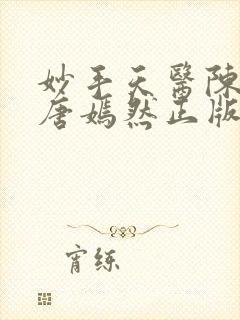 妙手天醫陳
唐嫣然正版
宵练